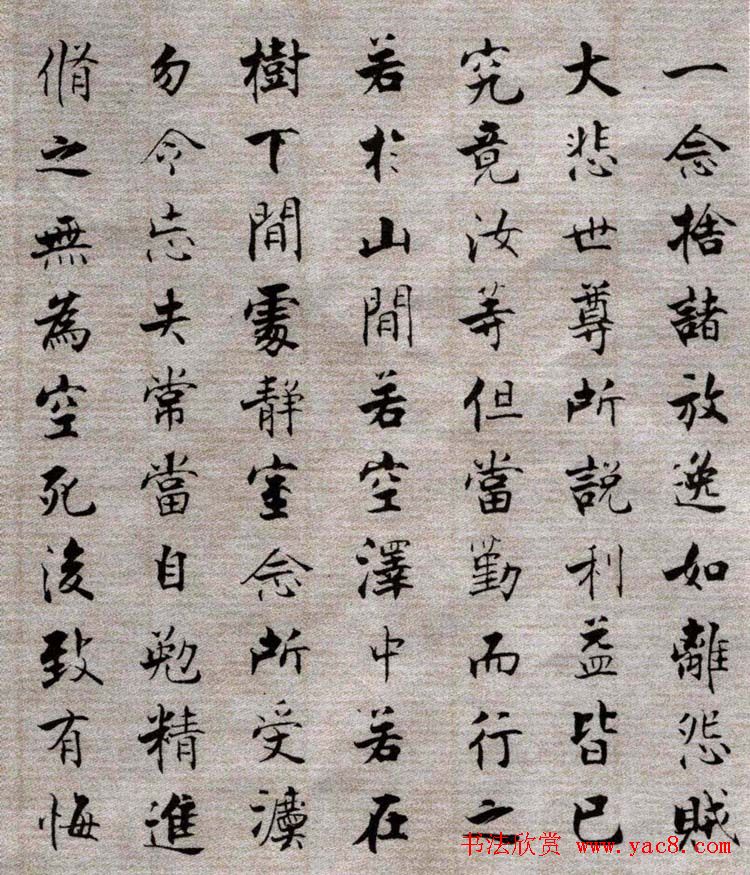 一念捨諸放逸如離怨賊
大悲世尊所説利益皆已
究竟汝等但當勤而行之
若於山間若空澤中若在
樹下間處静室念所受灋
勿令忘失常當自勉精進
脩之無為空死後致有悔
书法欣赏 www.yac8.com